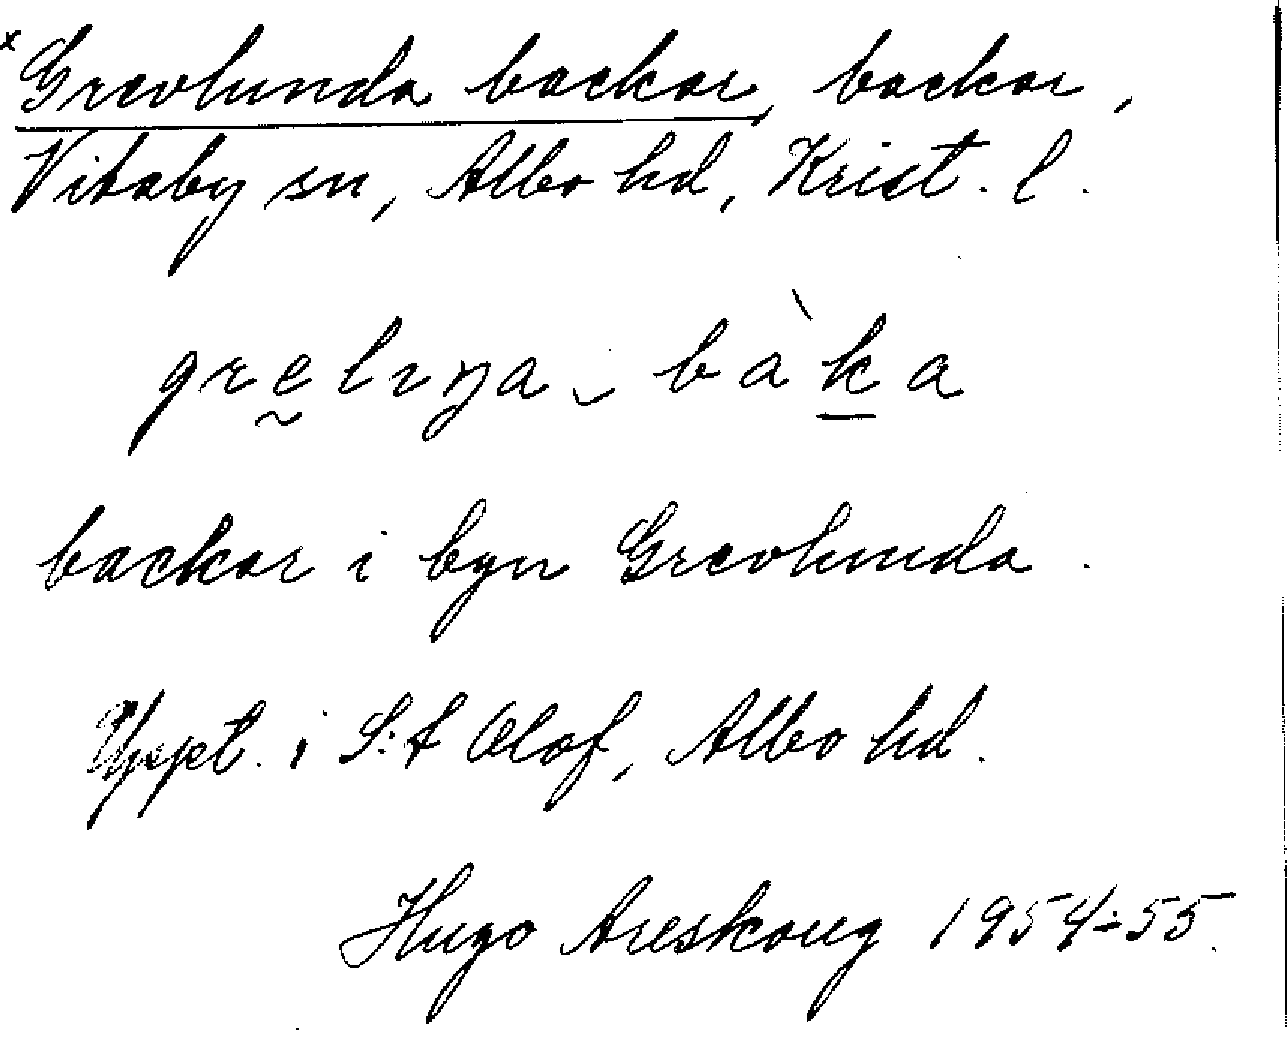 x Grevlunda backar, backar,
Vitaby sn, Albo hd, Krist. l.
grelıŋa ‿ bàka
backar i byn Grevlunda.
Uppt. i S:t Olof, Albo hd.
Hugo Areskoug 1954-55.